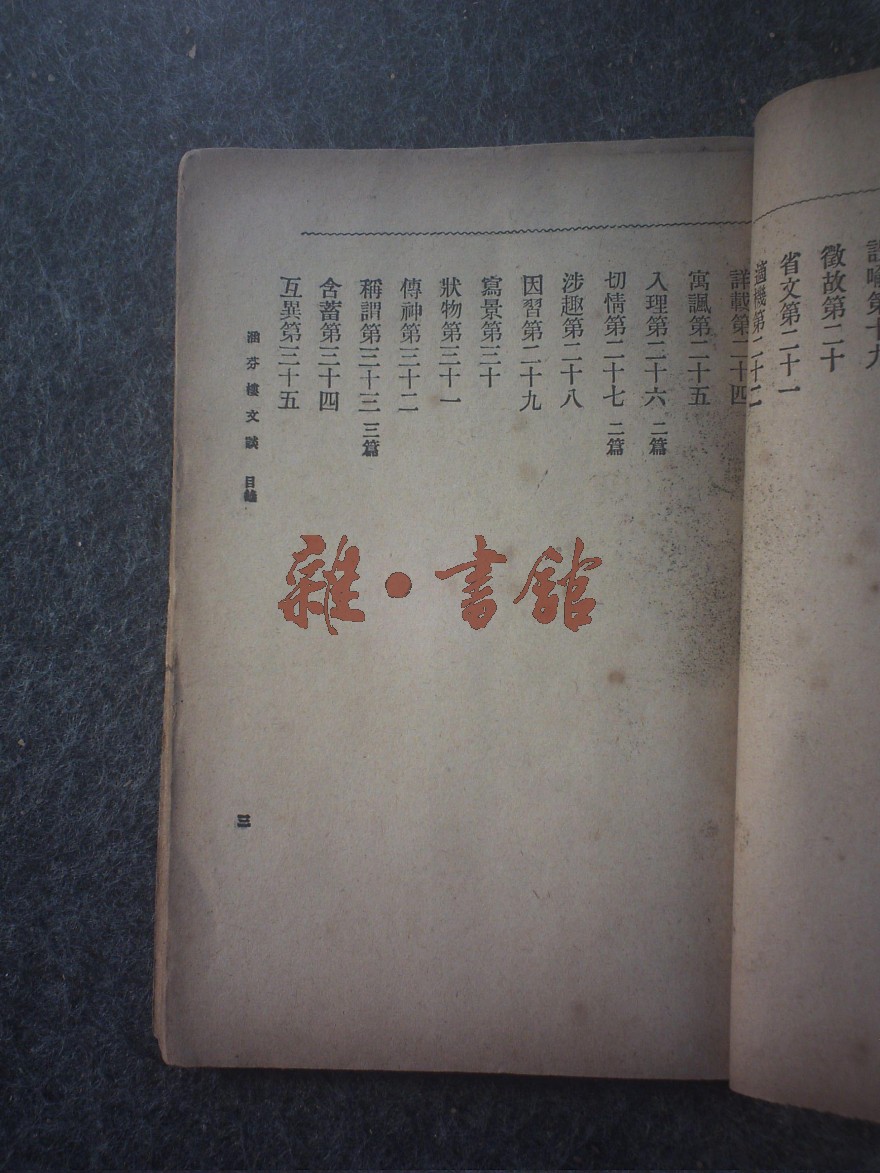 第十九
徵故第二十
省文第二十一
適機第二十二
詳載第二十四
寓諷第二十五
入理第二十六 二篇
切情第二十七 二篇
涉趣第二十八
因習第二十九
寫景第三十
狀物第三十一
傳神第三十二
稱謂第三十三 三篇
含蓄第三十四
互異第三十五
涵芬樓文談 目錄
三
雜·書館